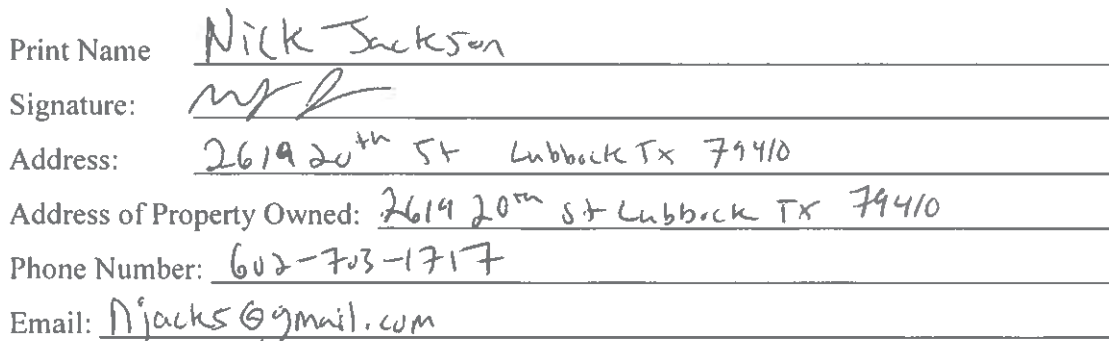 Print Name Nick Jackson
Signature:
Address: 2619 20th St Lubbock Tx 79410
Address of Property Owned: 2619 20th St Lubbock TX 79410
Phone Number: 602-703-1717
Email: Njacks@gmail.com